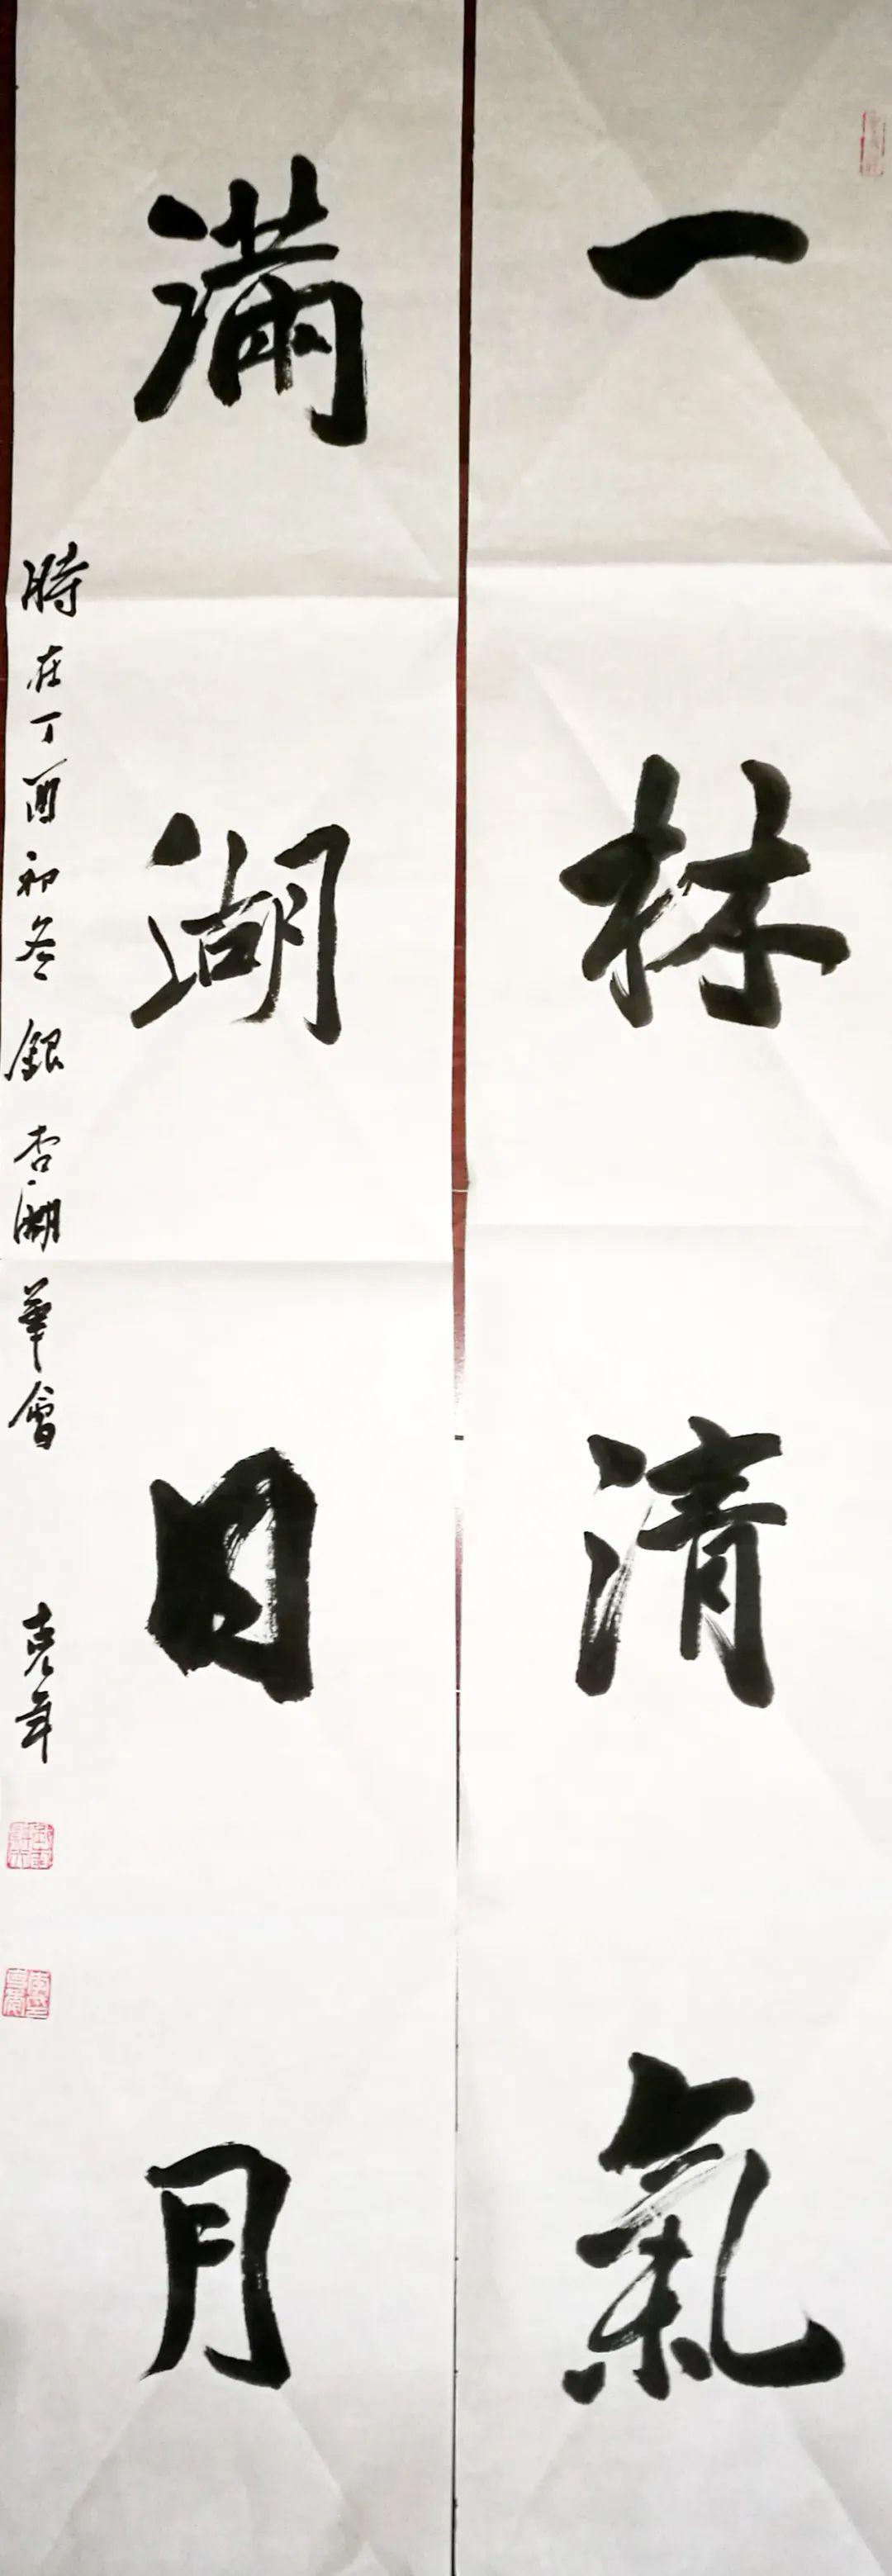 一林清氣
滿湖日月
時在丁酉初冬銀杏湖筆會 克年